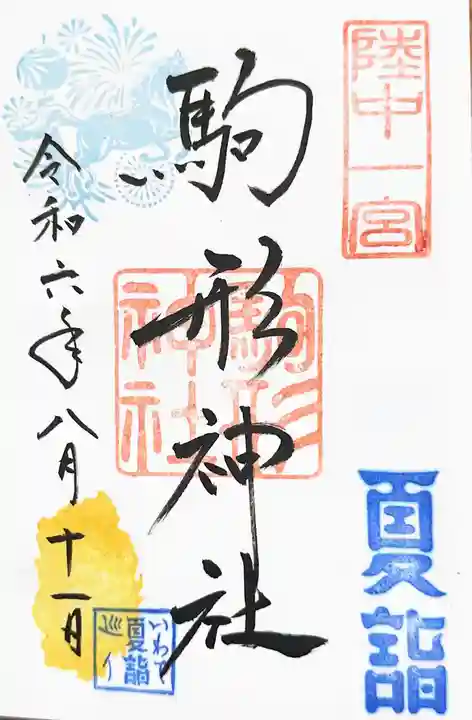 陸中一宮
夏詣
駒形神社
駒形神社
令和六年八月十一日
いわて
夏詣
巡り